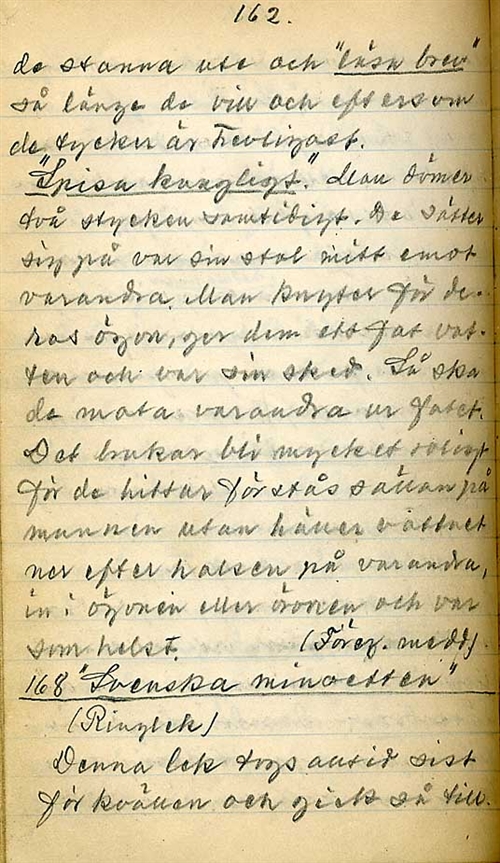 162.
de stanna ute och "läsa brev"
så länge de vill och eftersom
de tycker är trevligast.
"Spisa kungligt." Man dömer
två stycken samtidigt. De sätter
sig på var sin stol mitt emot
varandra. Man knyter för de-
ras ögon, ger dem ett fat vat-
ten och var sin sked. Så ska
de mata varandra ur fatet.
Det brukar bli mycket roligt
för de hittar förstås sällan på
munnen utan häller vattnet
ner efter halsen på varandra,
in i ögonen eller öronen och var
som helst. (Föreg. medd.)
168 "Svenska minoetten"
(Ringlek)
Denna lek togs alltid sist
för kvällen och gick så till.